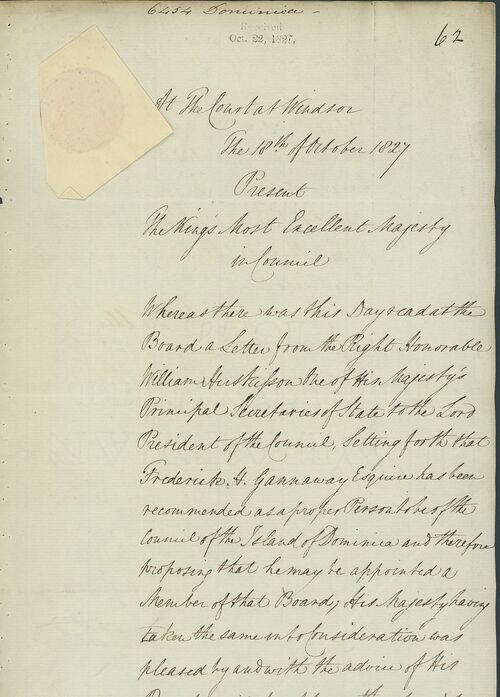 6454 Dominica -
Received
Oct. 22, 1827.
62
At The Court at Windsor
The 18th of October 1827
Present
The King's Most Excellent Majesty
in Council
Whereas there was this Day read at the
Board a Letter from the Right Honorable
William Huskisson One of His Majesty's
Principal Secretaries of State to the Lord
President of the Council, Setting forth that
Frederick H. Gannaway Esquire has been
recommended as a proper Person to be of the
Council of the Island of Dominica and therefore
proposing that he may be appointed a
Member of that Board; His Majesty having
taken the same into Consideration was
pleased by and with the advice of His